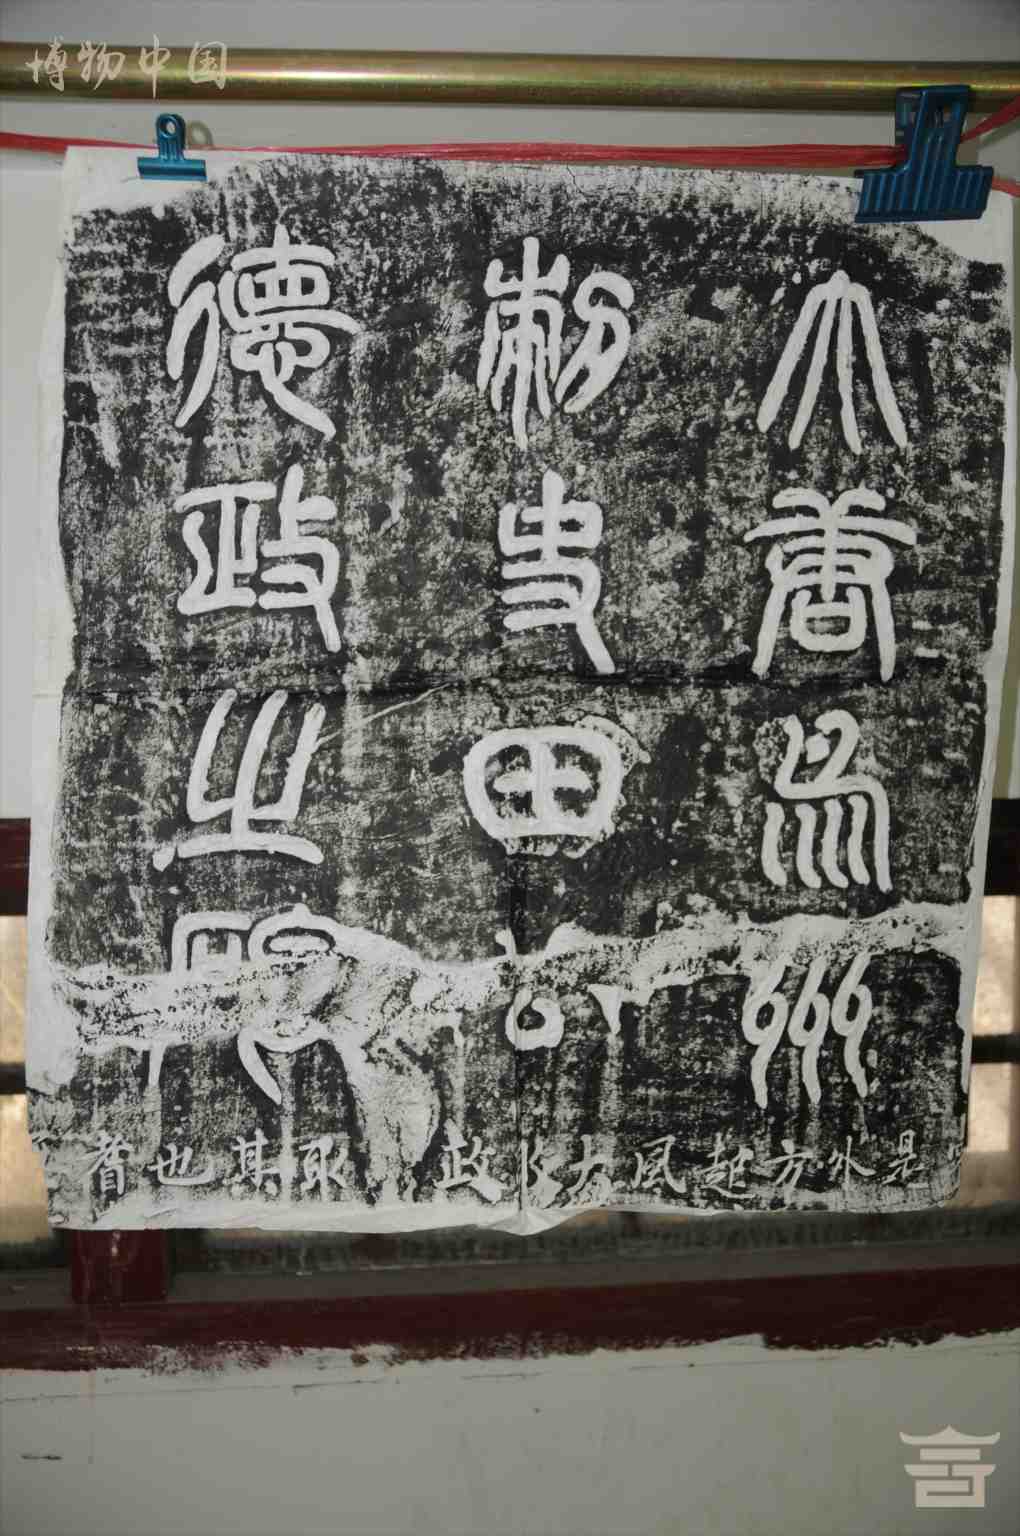 博物中国
大唐易州
刺史田公
德政之碑
是外方起風大
政
取其也